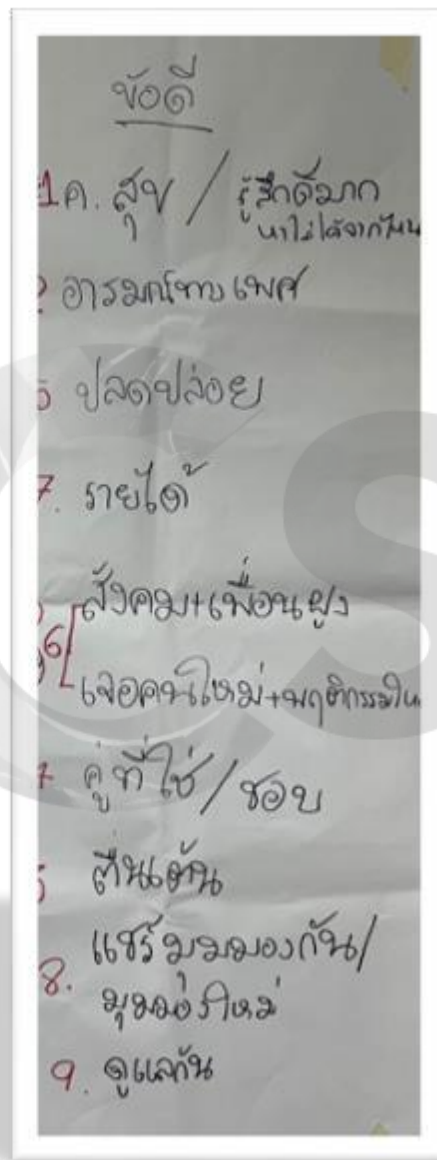 ข้อดี
1 ค. สุข / รู้สึกดีมาก
หาไม่ได้จากไหน
2 อารมณ์ทางเพศ
5 ปลดปล่อย
7. รายได้
สังคม+เพื่อนฝูง
6
เจอคนใหม่+พฤติกรรมให
7 คู่ที่ใช่ / ชอบ
5 ตื่นเต้น
แชร์มุมมองกัน/
8.
มุมมองใหม่
9. ดูแลกัน